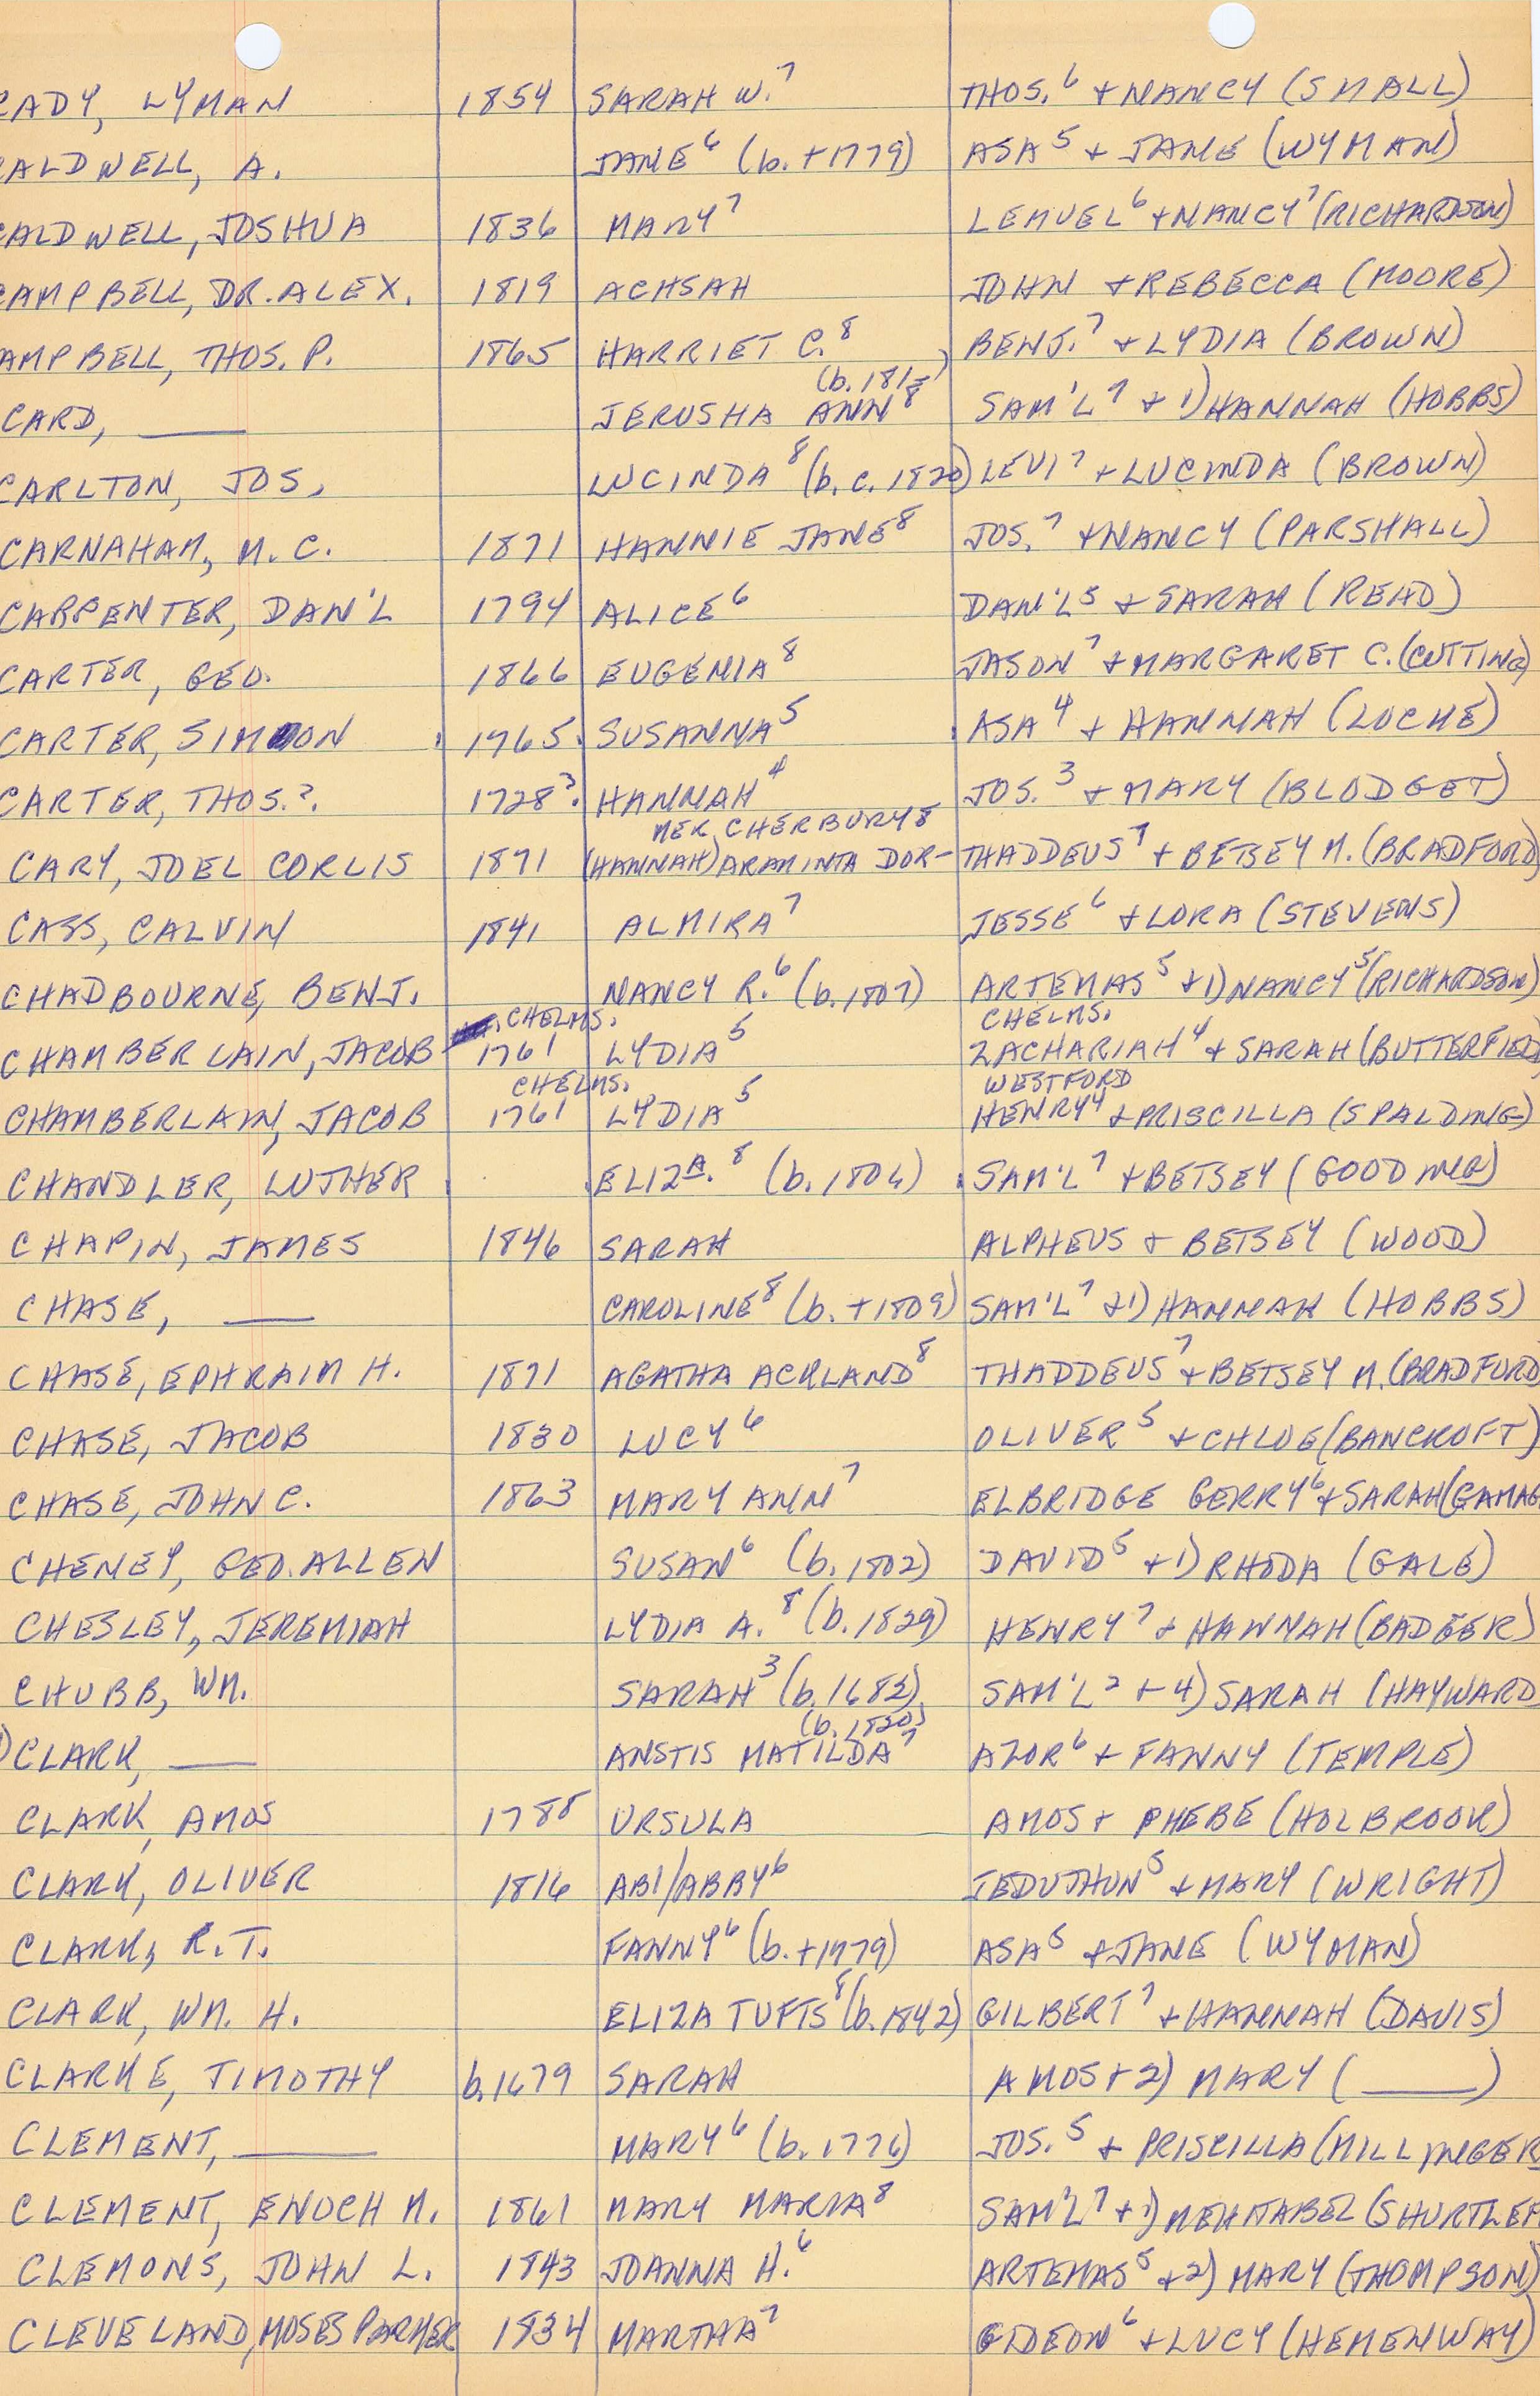 CADY, LYMAN 1854 SARAH W.⁷ THOS.⁶ + NANCY (SMALL)
CALDWELL, A. JANE⁶ (b. +1779) ASA⁵ + JANE (WYMAN)
CALDWELL, JOSHUA 1836 MARY⁷ LEMUEL⁶ + NANCY⁷ (RICHARDSON)
CAMPBELL, DR. ALEX. 1819 ACHSAH JOHN + REBECCA (MOORE)
CAMPBELL, THOS. P. 1865 HARRIET C.⁸ BENJ.⁷ + LYDIA (BROWN)
CARD, ____ JERUSHA ANN⁸ SAM'L⁷ + 1) HANNAH (HOBBS)
CARLTON, JOS. LUCINDA⁸ (b. c. 1820) LEVI⁷ + LUCINDA (BROWN)
CARNAHAM, M. C. 1871 HANNIE JANE⁸ JOS.⁷ + NANCY (PARSHALL)
CARPENTER, DAN'L 1794 ALICE⁶ DAN'L⁵ + SARAH (READ)
CARTER, GEO. 1866 EUGENIA⁸ JASON⁷ + MARGARET C. (CUTTING)
CARTER, SIMON 1765 SUSANNA⁵ ASA⁴ + HANNAH (LOCKE)
CARTER, THOS.?. 1728?. HANNAH⁴ JOS.³ + MARY (BLODGET)
MER CHERBURY⁸
CARY, JOEL CORLIS 1871 (HANNAH) ARAMINTA DOR- THADDEUS⁷ + BETSEY M. (BRADFORD)
CASS, CALVIN 1841 ALMIRA⁷ JESSE⁶ + LORA (STEVENS)
CHADBOURNE, BENJ. NANCY R.⁶ (b. 1807) ARTEMAS⁵ + 1) NANCY⁵ (RICHARDSON)
CHELMS. CHELMS.
CHAMBERLAIN, JACOB 1761 LYDIA⁵ ZACHARIAH⁴ + SARAH (BUTTERFIELD)
CHELMS. WESTFORD
CHAMBERLAIN, JACOB 1761 LYDIA⁵ HENRY⁴ + PRISCILLA (SPALDING)
CHANDLER, LUTHER ELIZA.⁸ (b. 1806) SAM'L⁷ + BETSEY (GOODING)
CHAPIN, JAMES 1846 SARAH ALPHEUS + BETSEY (WOOD)
CHASE, ____ CAROLINE⁸ (b. +1809) SAM'L⁷ + 1) HANNAH (HOBBS)
CHASE, EPHRAIM H. 1871 AGATHA ACKLAND⁸ THADDEUS⁷ + BETSEY M. (BRADFORD
CHASE, JACOB 1830 LUCY⁶ OLIVER⁵ + CHLOE (BANCROFT)
CHASE, JOHN C. 1863 MARY ANN⁷ ELBRIDGE GERRY⁶ + SARAH (GAMAG
CHENEY, GEO. ALLEN SUSAN⁶ (b. 1802) DAVID⁵ + 1) RHODA (GALE)
CHESLEY, JEREMIAH LYDIA A.⁸ (b. 1829) HENRY⁷ + HANNAH (BADGER)
CHUBB, WM. SARAH³ (b. 1682) SAM'L² + 4) SARAH (HAYWARD)
(b. 1820)
CLARK, ____ ANSTIS MATILDA⁷ AZOR⁶ + FANNY (TEMPLE)
CLARK, AMOS 1788 URSULA AMOS + PHEBE (HOLBROOK)
CLARK, OLIVER 1816 ABI/ABBY⁶ JEDUTHUN⁵ + MARY (WRIGHT)
CLARK, R. T. FANNY⁶ (b. +1779) ASA⁵ + JANE (WYMAN)
CLARK, WM. H. ELIZA TUFTS⁸ (b. 1842) GILBERT⁷ + HANNAH (DAVIS)
CLARKE, TIMOTHY b. 1679 SARAH AMOS + 2) MARY (____)
CLEMENT, ____ MARY⁶ (b. 1776) JOS.⁵ + PRISCILLA (HILLINGER
CLEMENT, ENOCH M. 1861 MARY MARIA⁸ SAM'L⁷ + 1) MEHITABEL (SHURTLEF
CLEMONS, JOHN L. 1843 JOANNA H.⁶ ARTEMAS⁵ + 2) MARY (THOMPSON)
CLEVELAND, MOSES PARKER 1834 MARTHA⁷ GIDEON⁶ + LUCY (HEMENWAY)